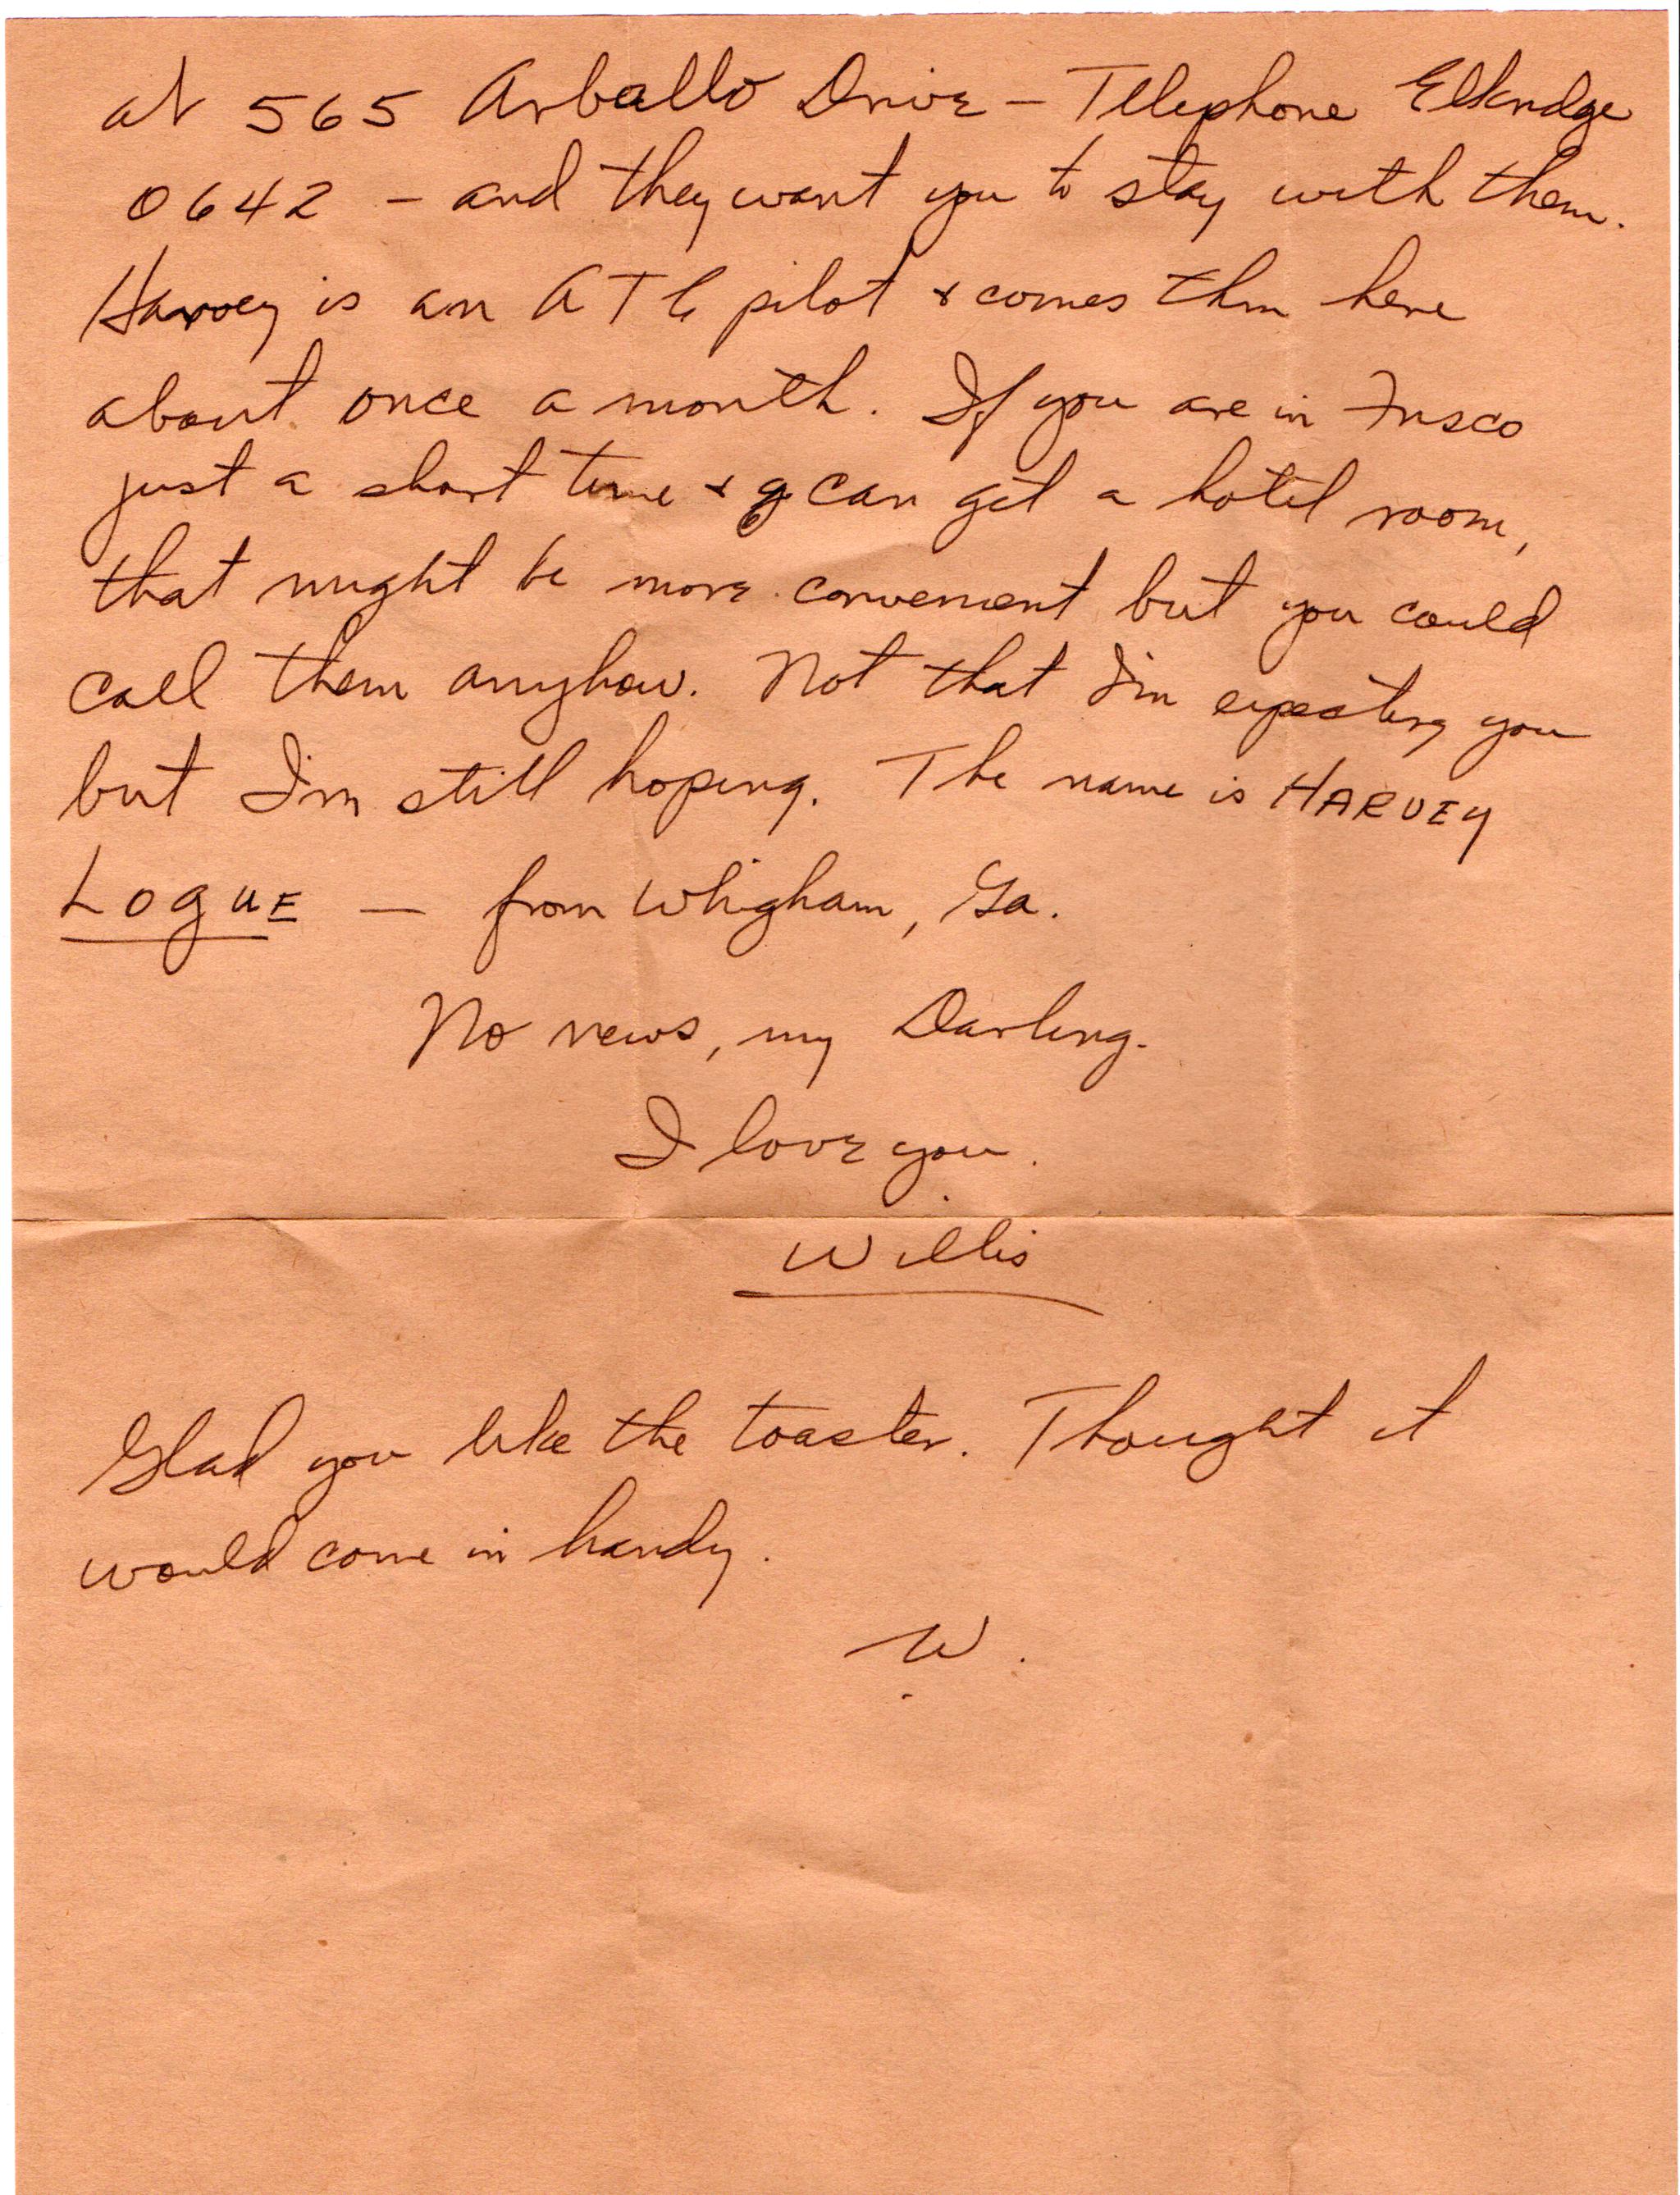 at 565 Arballo Drive - Telephone Elkridge
0642 - and they want you to stay with them.
Harvey is an ATC pilot & comes thru here
about once a month. If you are in Frisco
just a short time & can get a hotel room,
that might be more convenient but you could
call them anyhow. Not that I'm expecting you
but I'm still hoping. The name is HARVEY
LOGUE - from Whigham, Ga.
No news, my Darling.
I love you.
Willis
Glad you like the toaster. Thought it
would come in handy.
W.